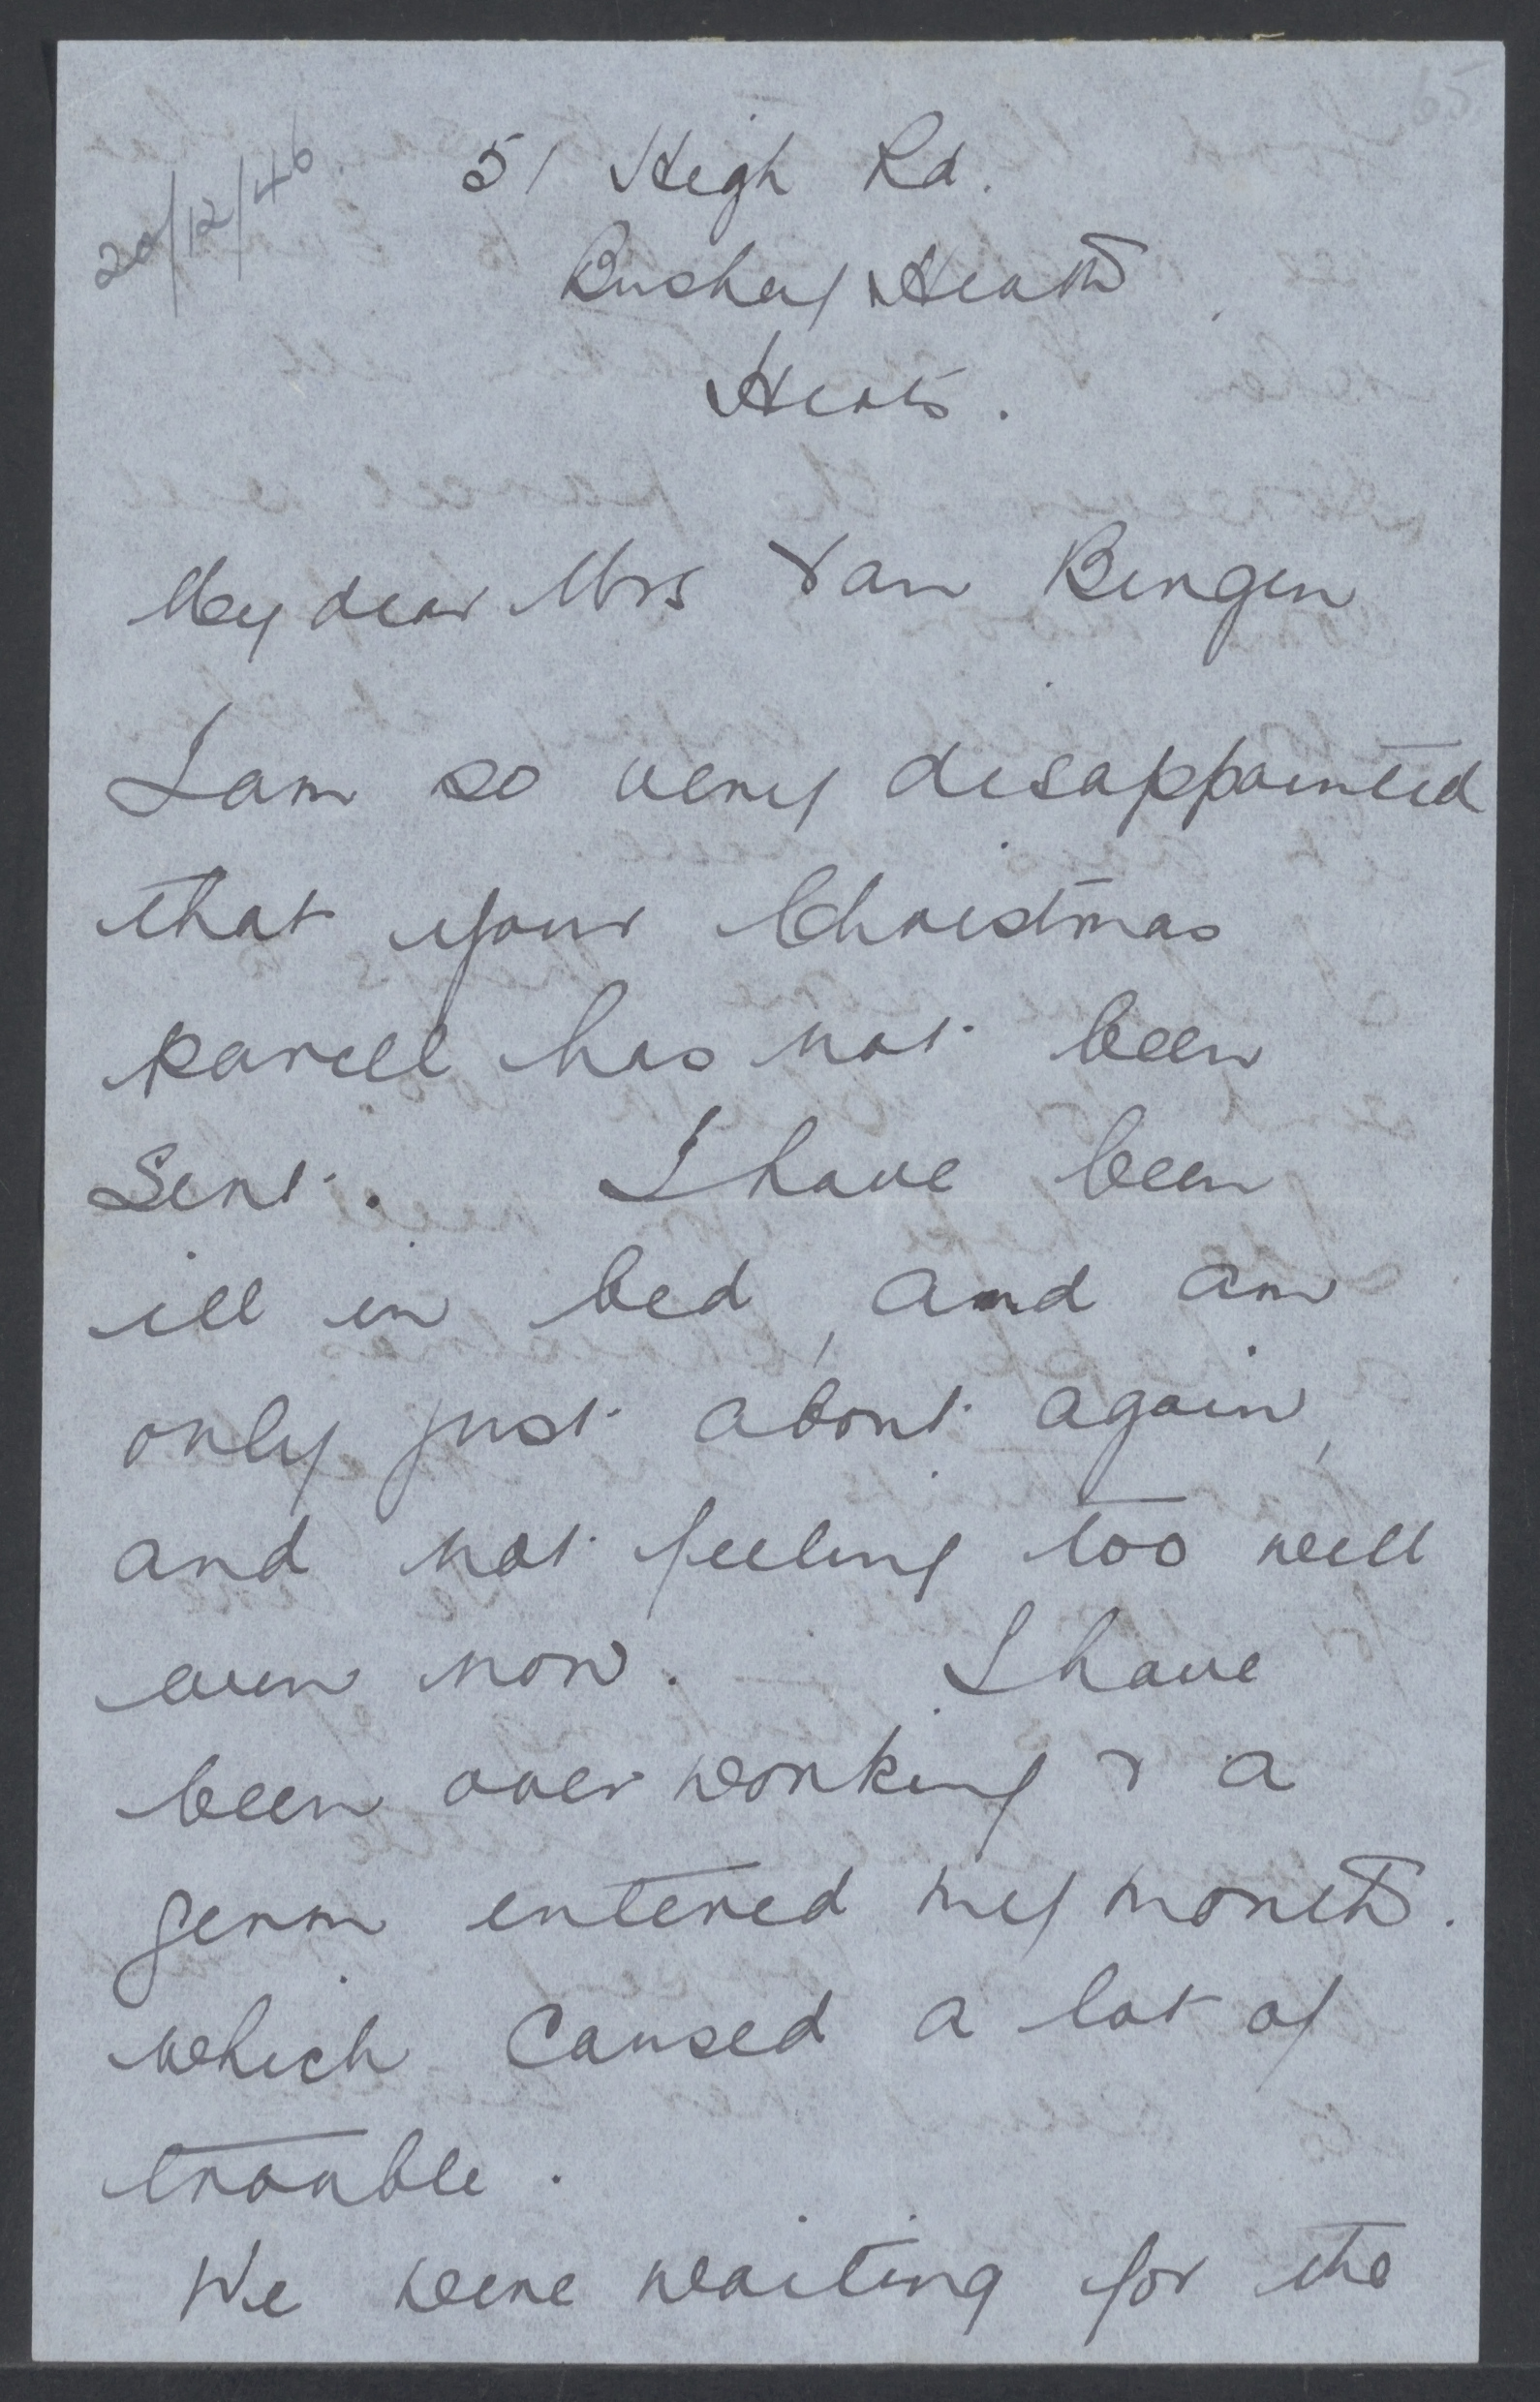 65
20/12/46
51 High Rd.
Bushey Heath,
Herts.
My dear Mrs Van Bergen
I am so very disappointed
that your Christmas
parcel has not been
Sent. I have been
ill in bed, and am
only just about again,
and not feeling too well
even now. I have
been over working & a
germ entered my mouth.
which caused a lot of
trouble.
We were waiting for the